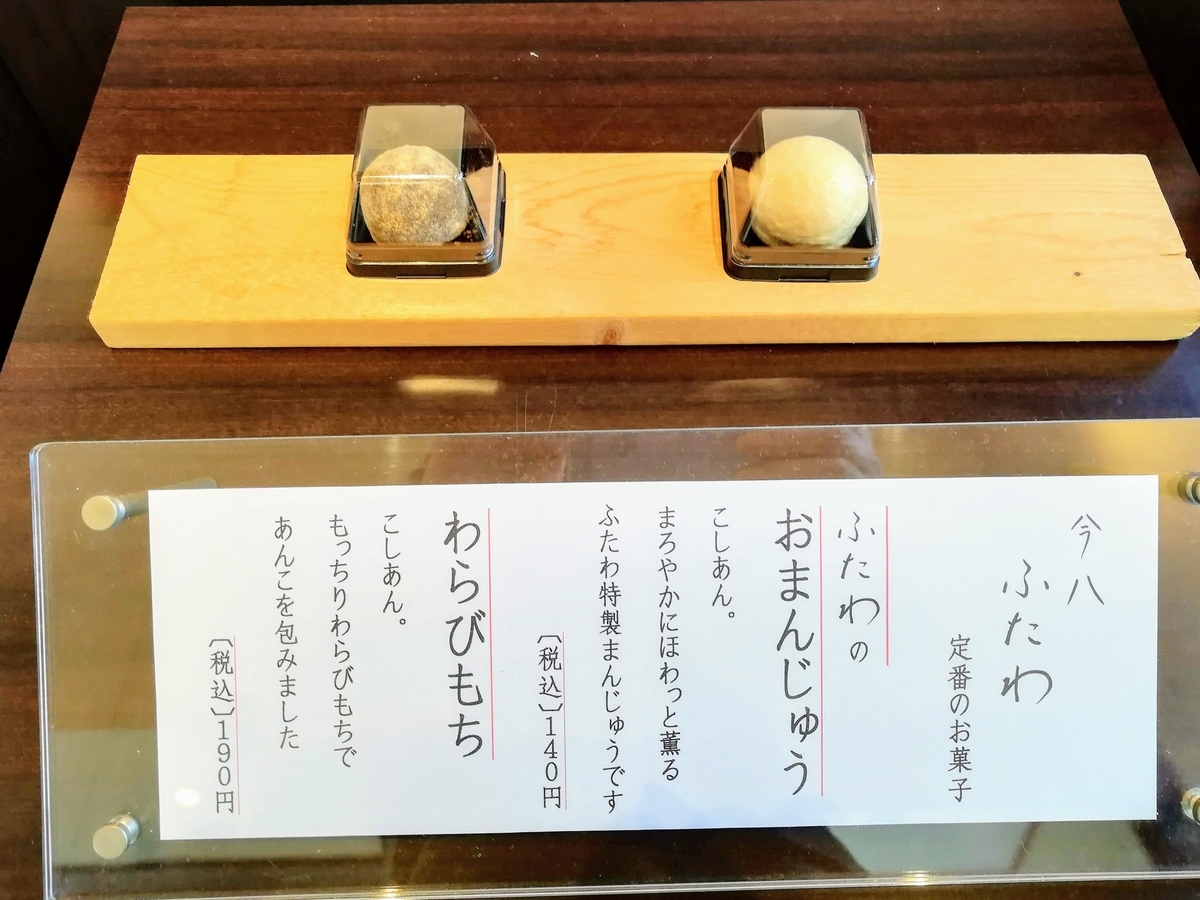 今八
ふたわ
定番のお菓子
ふたわの
おまんじゅう
こしあん。
まろやかにほわっと薫る
ふたわ特製まんじゅうです
〔税込〕140円
わらびもち
こしあん。
もっちりわらびもちで
あんこを包みました
〔税込〕190円